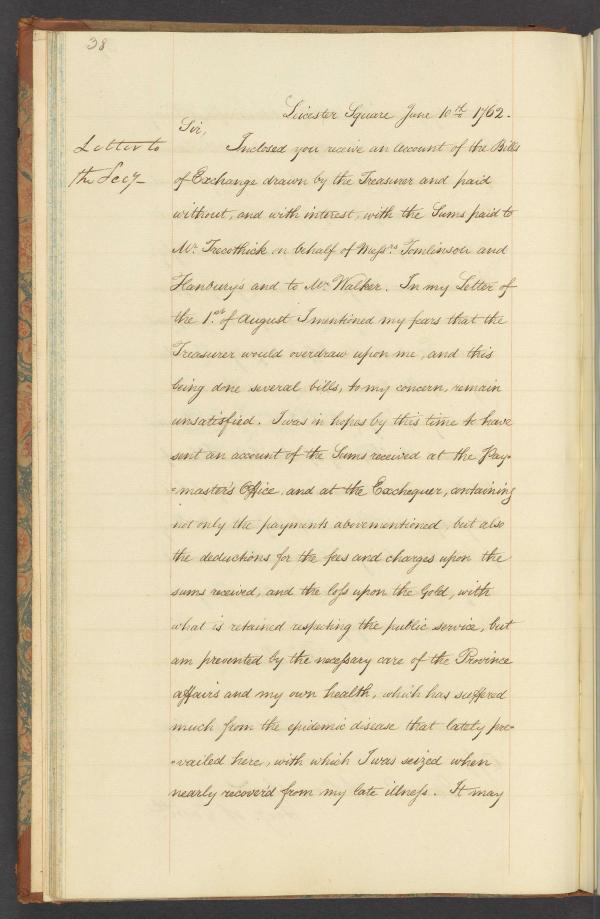 38
Leicester Square June 10th 1762.
Letter to
the Secy-
Sir,
Inclosed you receive an account of the Bills
of Exchange drawn by the Treasurer and paid
without, and with interest, with the Sums paid to
Mr. Trecothick on behalf of Messrs. Tomlinson and
Hanbury's and to Mr. Walker. In my Letter of
the 1st of August I mentioned my fears that the
Treasurer would overdraw upon me, and this
being done several bills, to my concern, remain
unsatisfied. I was in hopes by this time to have
sent an account of the Sums received at the Pay-
-master's Office, and at the Exchequer, containing
not only the payments abovementioned, but also
the deductions for the fees and charges upon the
sums received, and the loss upon the Gold, with
what is retained respecting the public service, but
am prevented by the necessary care of the Province
affairs and my own health, which has suffered
much from the epidemic disease that lately pre-
-vailed here, with which I was seized when
nearly recover'd from my late illness. It may